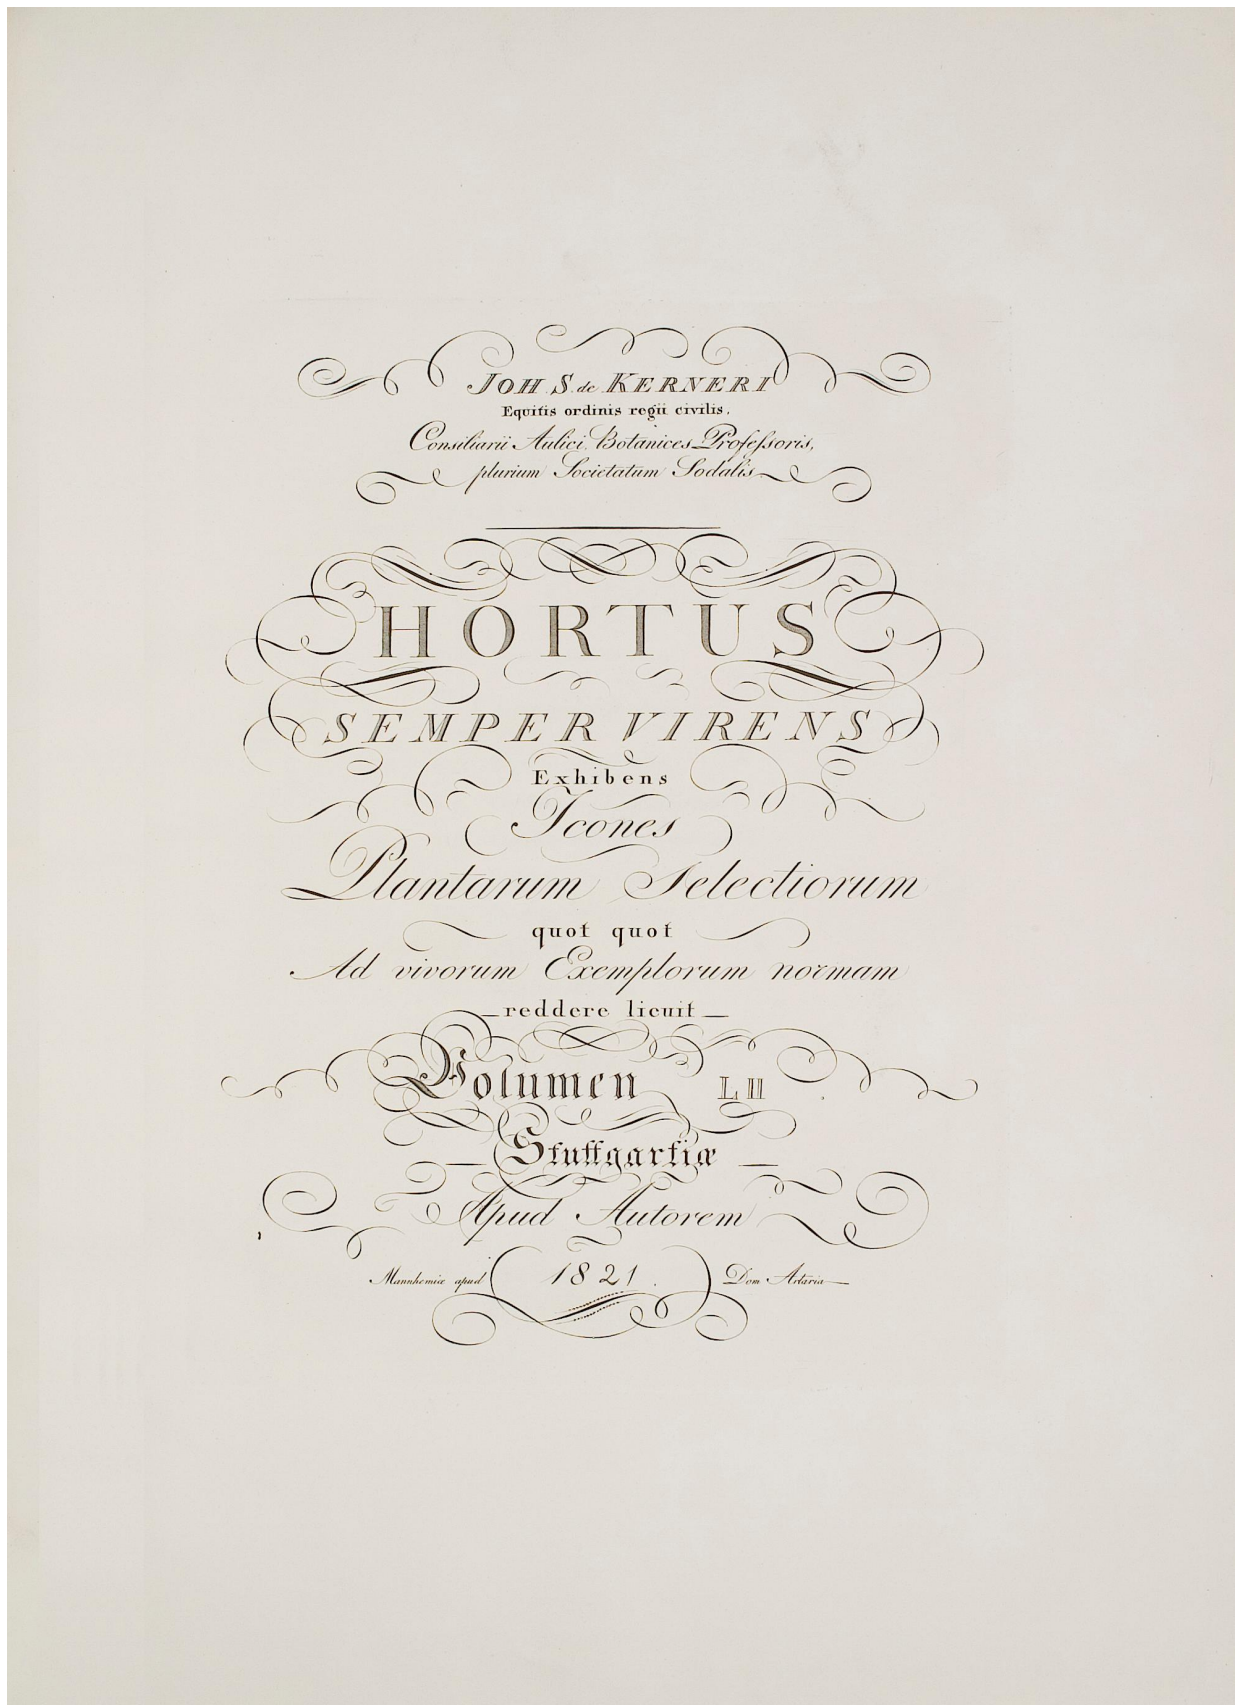 JOH. S. de KERNERI
Equitis ordinis regii civilis,
Consiliarii Aulici, Botanices Professoris,
plurium Societatum Sodalis
HORTUS
SEMPER VIRENS
Exhibens
Icones
Plantarum Selectiorum
quot quot
Ad vivorum Exemplorum normam
reddere licuit
Volumen LII
Stuttgartiæ
Apud Autorem
Mannhemiæ apud 1821. Dom Artaria